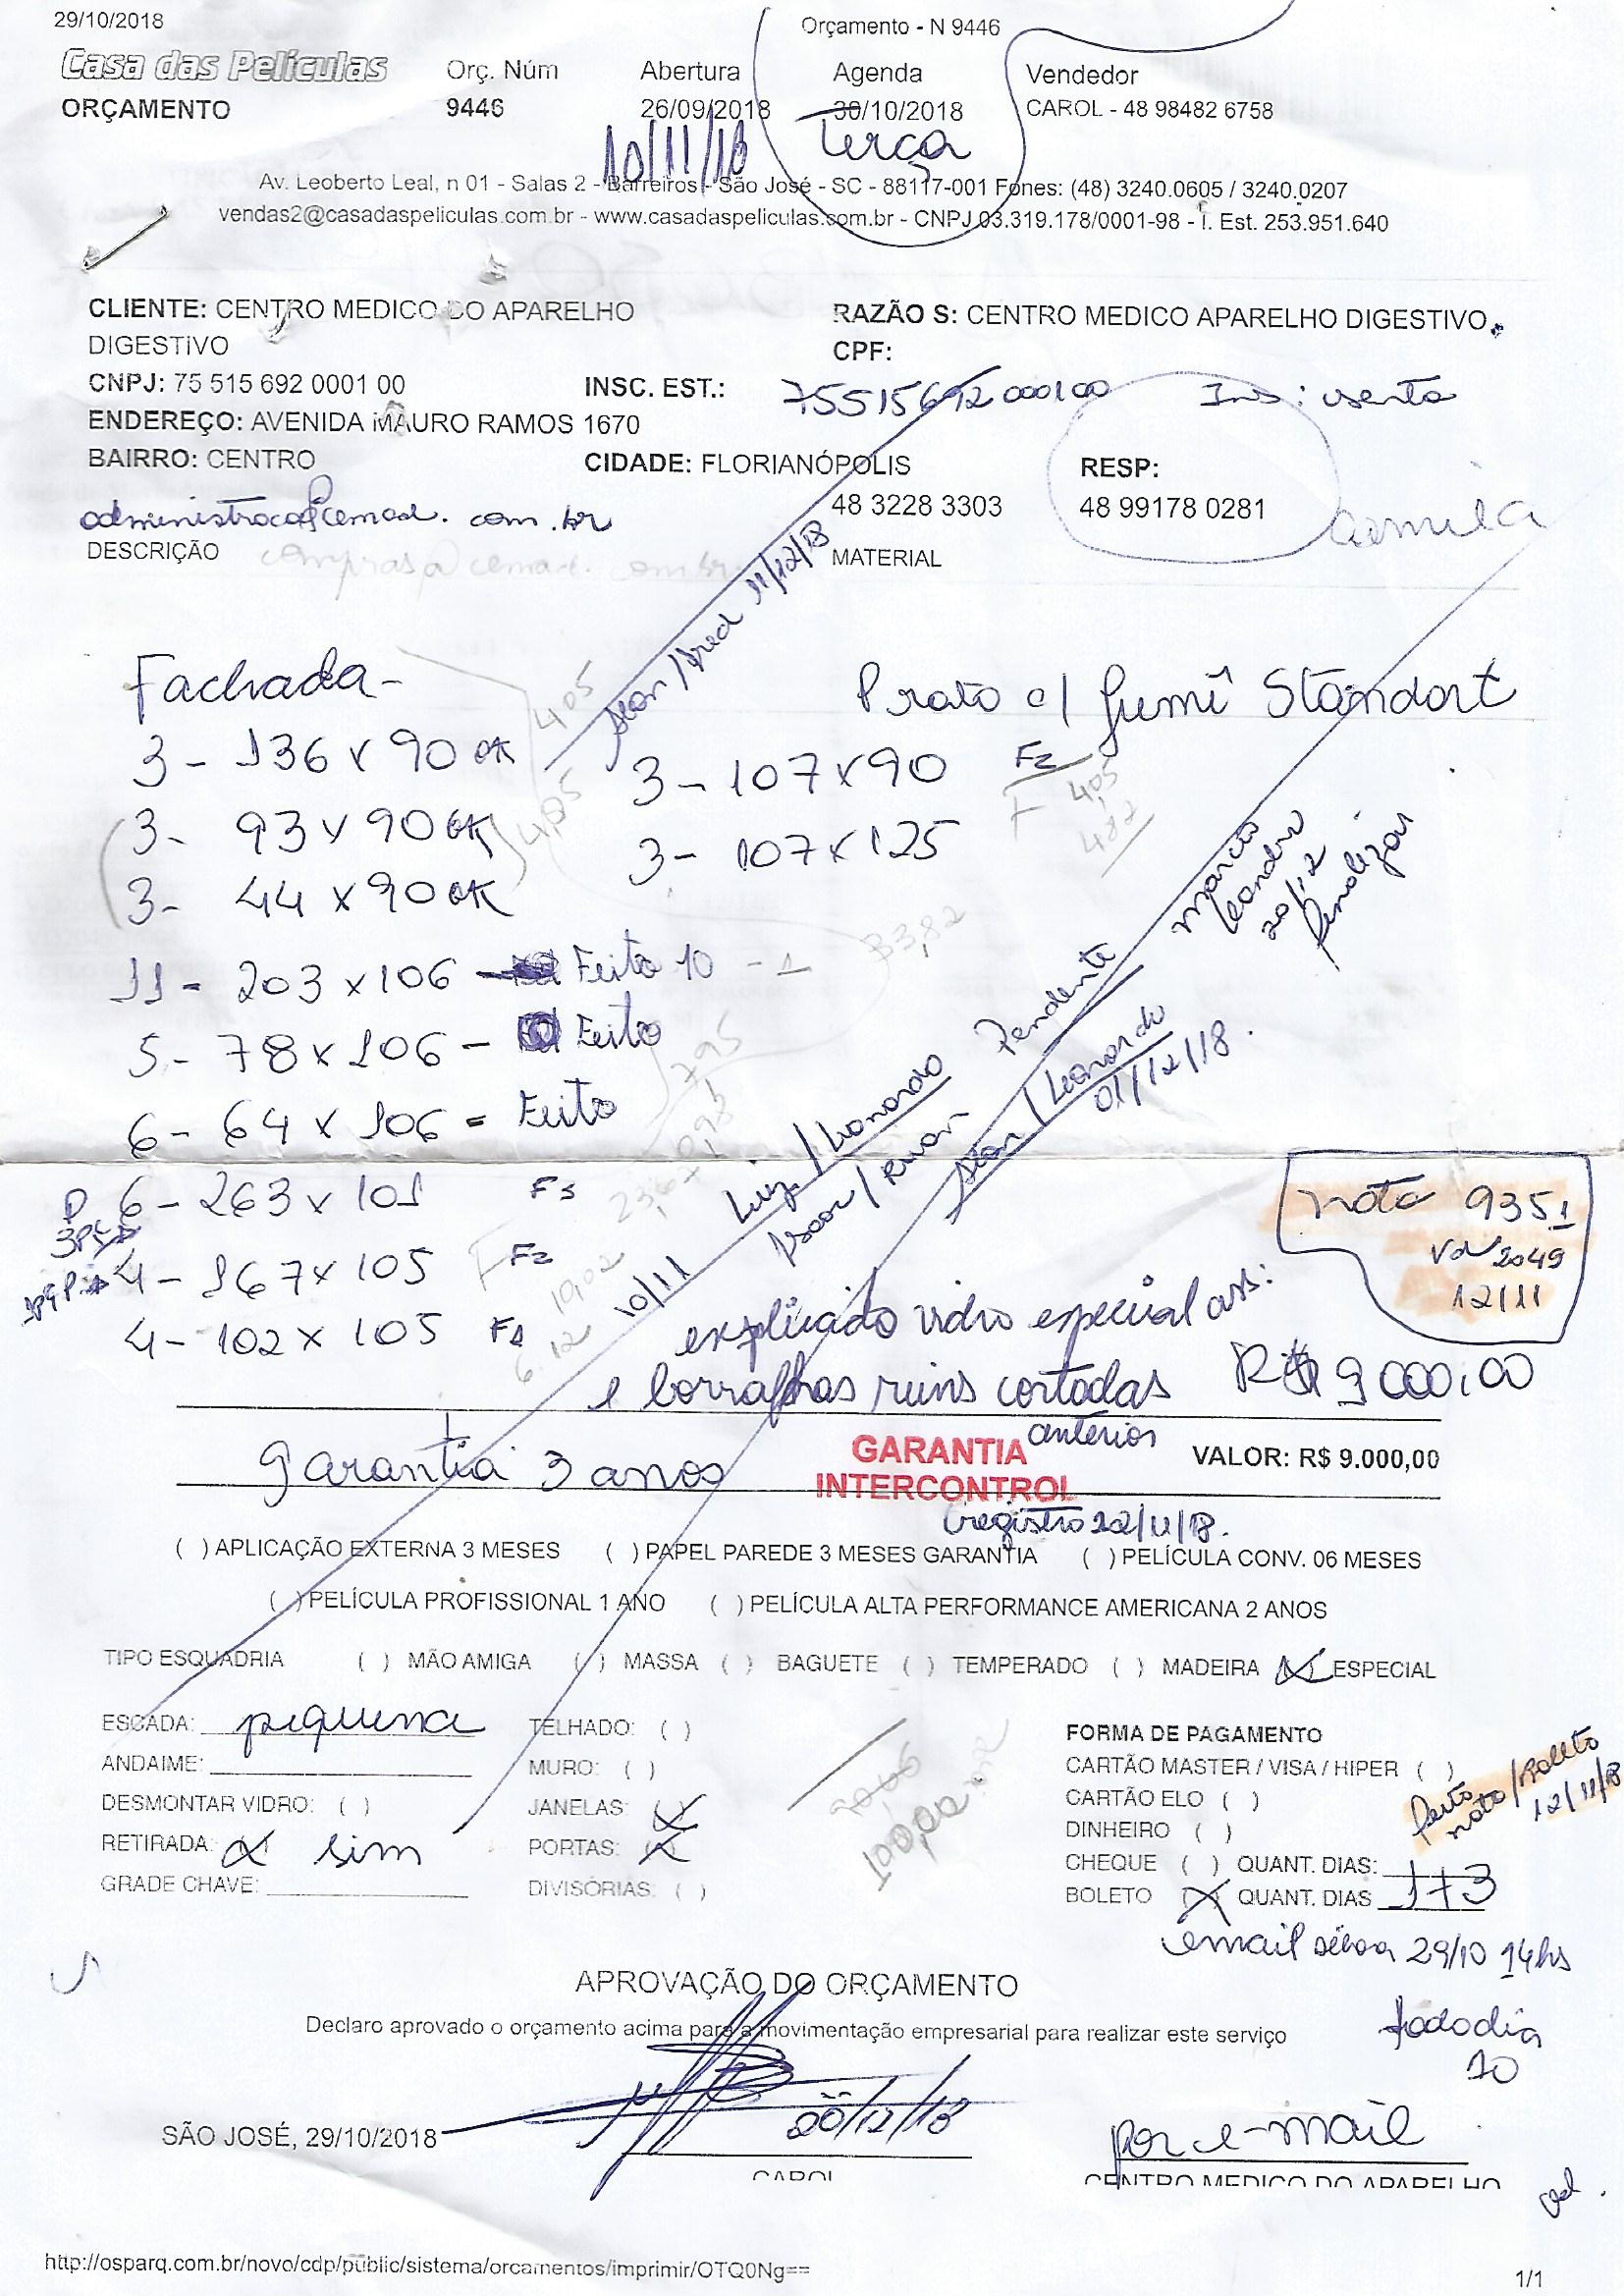 29/10/2018
Orçamento - N 9446
Casa das Películas
ORÇAMENTO
Orç. Núm
9446
Abertura
26/09/2018
10/11/18
Agenda
30/10/2018
Terça
Vendedor
CAROL - 48 98482 6758
Av. Leoberto Leal, n 01 - Salas 2 - Barreiros - São José - SC - 88117-001 Fones: (48) 3240.0605 / 3240.0207
vendas2@casadaspeliculas.com.br - www.casadaspeliculas.com.br - CNPJ 03.319.178/0001-98 - I. Est. 253.951.640
CLIENTE: CENTRO MEDICO DO APARELHO
DIGESTIVO
RAZÃO S: CENTRO MEDICO APARELHO DIGESTIVO
CPF:
CNPJ: 75 515 692 0001 00
INSC. EST.: 75515692000100
ENDEREÇO: AVENIDA MAURO RAMOS 1670
BAIRRO: CENTRO
CIDADE: FLORIANÓPOLIS
RESP:
48 3228 3303
48 99178 0281
DESCRIÇÃO
MATERIAL
Fachada -
3 - 136 x 90 ok
3 - 93 x 90 ok
3 - 44 x 90 ok
11 - 203 x 106 - Feito 10 - 1
5 - 78 x 106 - Feito
6 - 64 x 106 = Feito
6 - 263 x 101
4 - 167 x 105 F2
4 - 102 x 105
3 - 107 x 90 F2
3 - 107 x 125
405
405
405
482
33,82
7,95
19,02
6.12
11/12/18
Marcio
Leandro
20/12
finalizar
Pendente
/ Leonardo
01/12/18.
10/11 / Leonardo
nota 9351
vd 2049
12/11
explicado vidro especial ass:
e borrachas ruins cortadas R$ 9000,00
anterior
garantia 3 anos
GARANTIA
INTERCONTROL
VALOR: R$ 9.000,00
registro 22/11/18.
( ) APLICAÇÃO EXTERNA 3 MESES ( ) PAPEL PAREDE 3 MESES GARANTIA ( ) PELÍCULA CONV. 06 MESES
( ) PELÍCULA PROFISSIONAL 1 ANO ( ) PELÍCULA ALTA PERFORMANCE AMERICANA 2 ANOS
TIPO ESQUADRIA ( ) MÃO AMIGA ( ) MASSA ( ) BAGUETE ( ) TEMPERADO ( ) MADEIRA (X) ESPECIAL
ESCADA: pequena
ANDAIME:
DESMONTAR VIDRO: ( )
RETIRADA: (X) sim
GRADE CHAVE:
TELHADO: ( )
MURO: ( )
JANELAS: (X)
PORTAS: (X)
DIVISÓRIAS: ( )
100,00
FORMA DE PAGAMENTO
CARTÃO MASTER / VISA / HIPER ( )
CARTÃO ELO ( )
DINHEIRO ( )
CHEQUE ( ) QUANT. DIAS:
BOLETO (X) QUANT. DIAS 1+3
feito
nota/Boleto
12/11/18
email 29/10 14hs
todo dia
10
APROVAÇÃO DO ORÇAMENTO
Declaro aprovado o orçamento acima para a movimentação empresarial para realizar este serviço
SÃO JOSÉ, 29/10/2018
20/12/18
CAROL
por e-mail
CENTRO MEDICO DO APARELHO
http://osparq.com.br/novo/cdp/public/sistema/orcamentos/imprimir/OTQ0Ng==
1/1